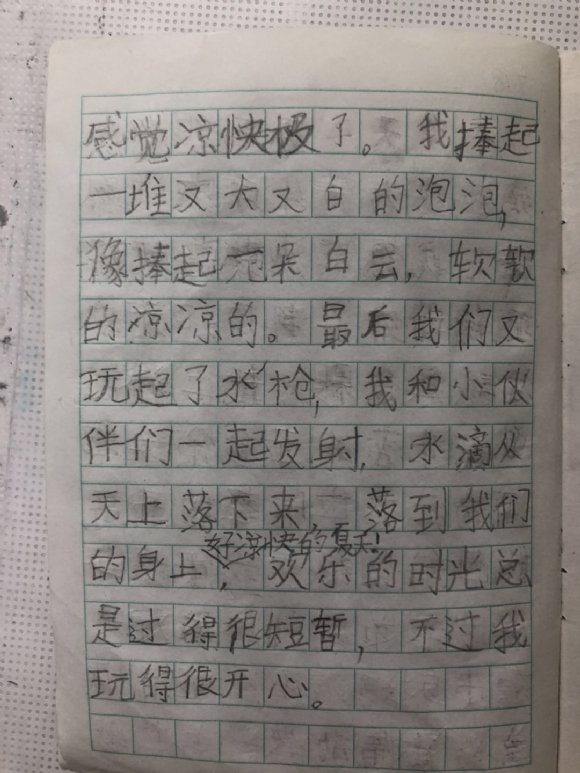 感觉凉快极了。我捧起
一堆又大又白的泡泡,
像捧起一朵白云,软软
的凉凉的。最后我们又
玩起了水枪,我和小伙
伴们一起发射,水滴从
天上落下来,落到我们
好凉快的夏天!
的身上,欢乐的时光总
是过得很短暂,不过我
玩得很开心。